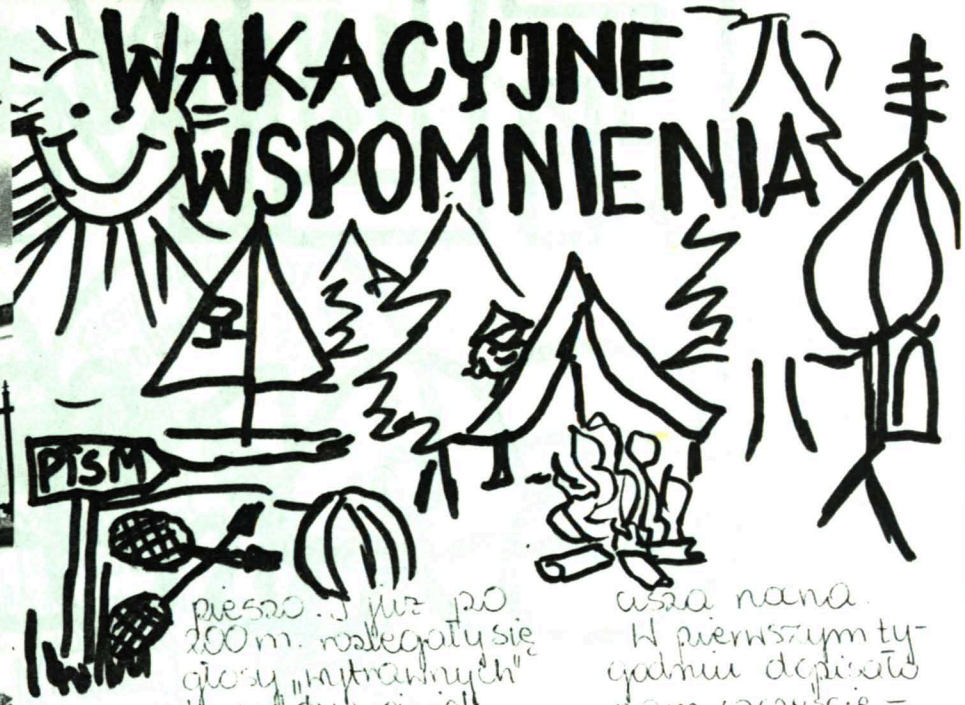 WAKACYJNE
WSPOMNIENIA
PTSM
pieszo. I już po
200 m. rozlegały się
głosy „wytrawnych"
cisza nana.
W pierwszym ty-
godniu dopisała